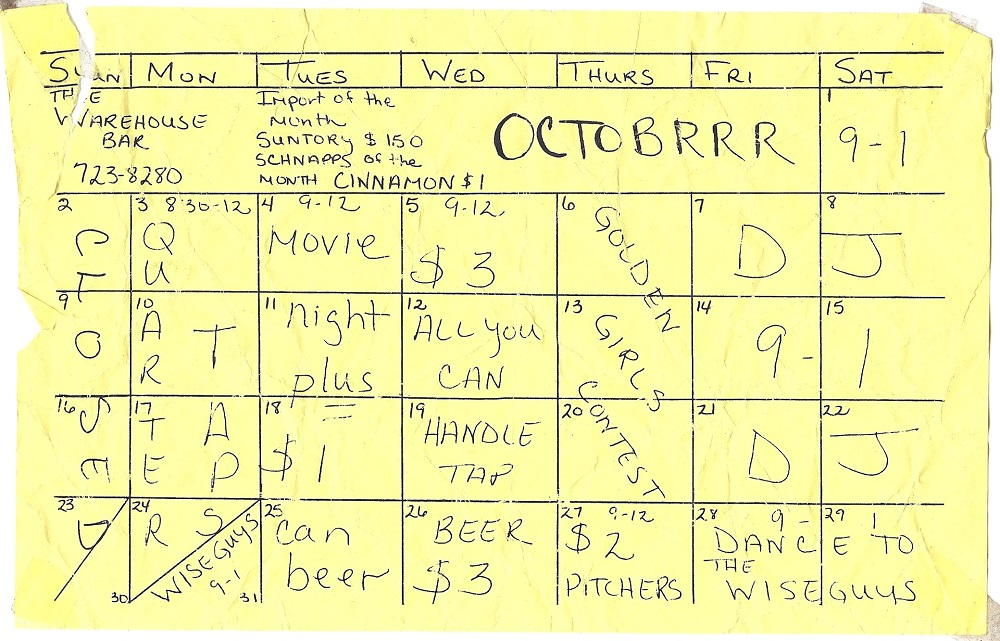 SUN MON TUES WED THURS FRI SAT
THE
WAREHOUSE
BAR
723-8280
Import of the
Month
SUNTORY $150
SCHNAPPS of the
MONTH CINNAMON $1
OCTOBRRR
1
9-1
2 3 8:30-12 4 9-12 5 9-12 6 7 8
C
L
Q
U
MOVIE
$3
GOLDEN
D J
9 10 11 12 13 14 15
O
A T
R
night
plus
ALL you
CAN
GIRLS
9-1
16 17 18 19 20 21 22
S
E
T A
E P
$1
HANDLE
TAP
CONTEST
D J
23 24 25 26 27 9-12 28 9- 29 1
D
R S
can
beer
BEER
$3
$2
PITCHERS
DANCE TO
THE
WISEGUYS
30
WISEGUYS
9-1
31